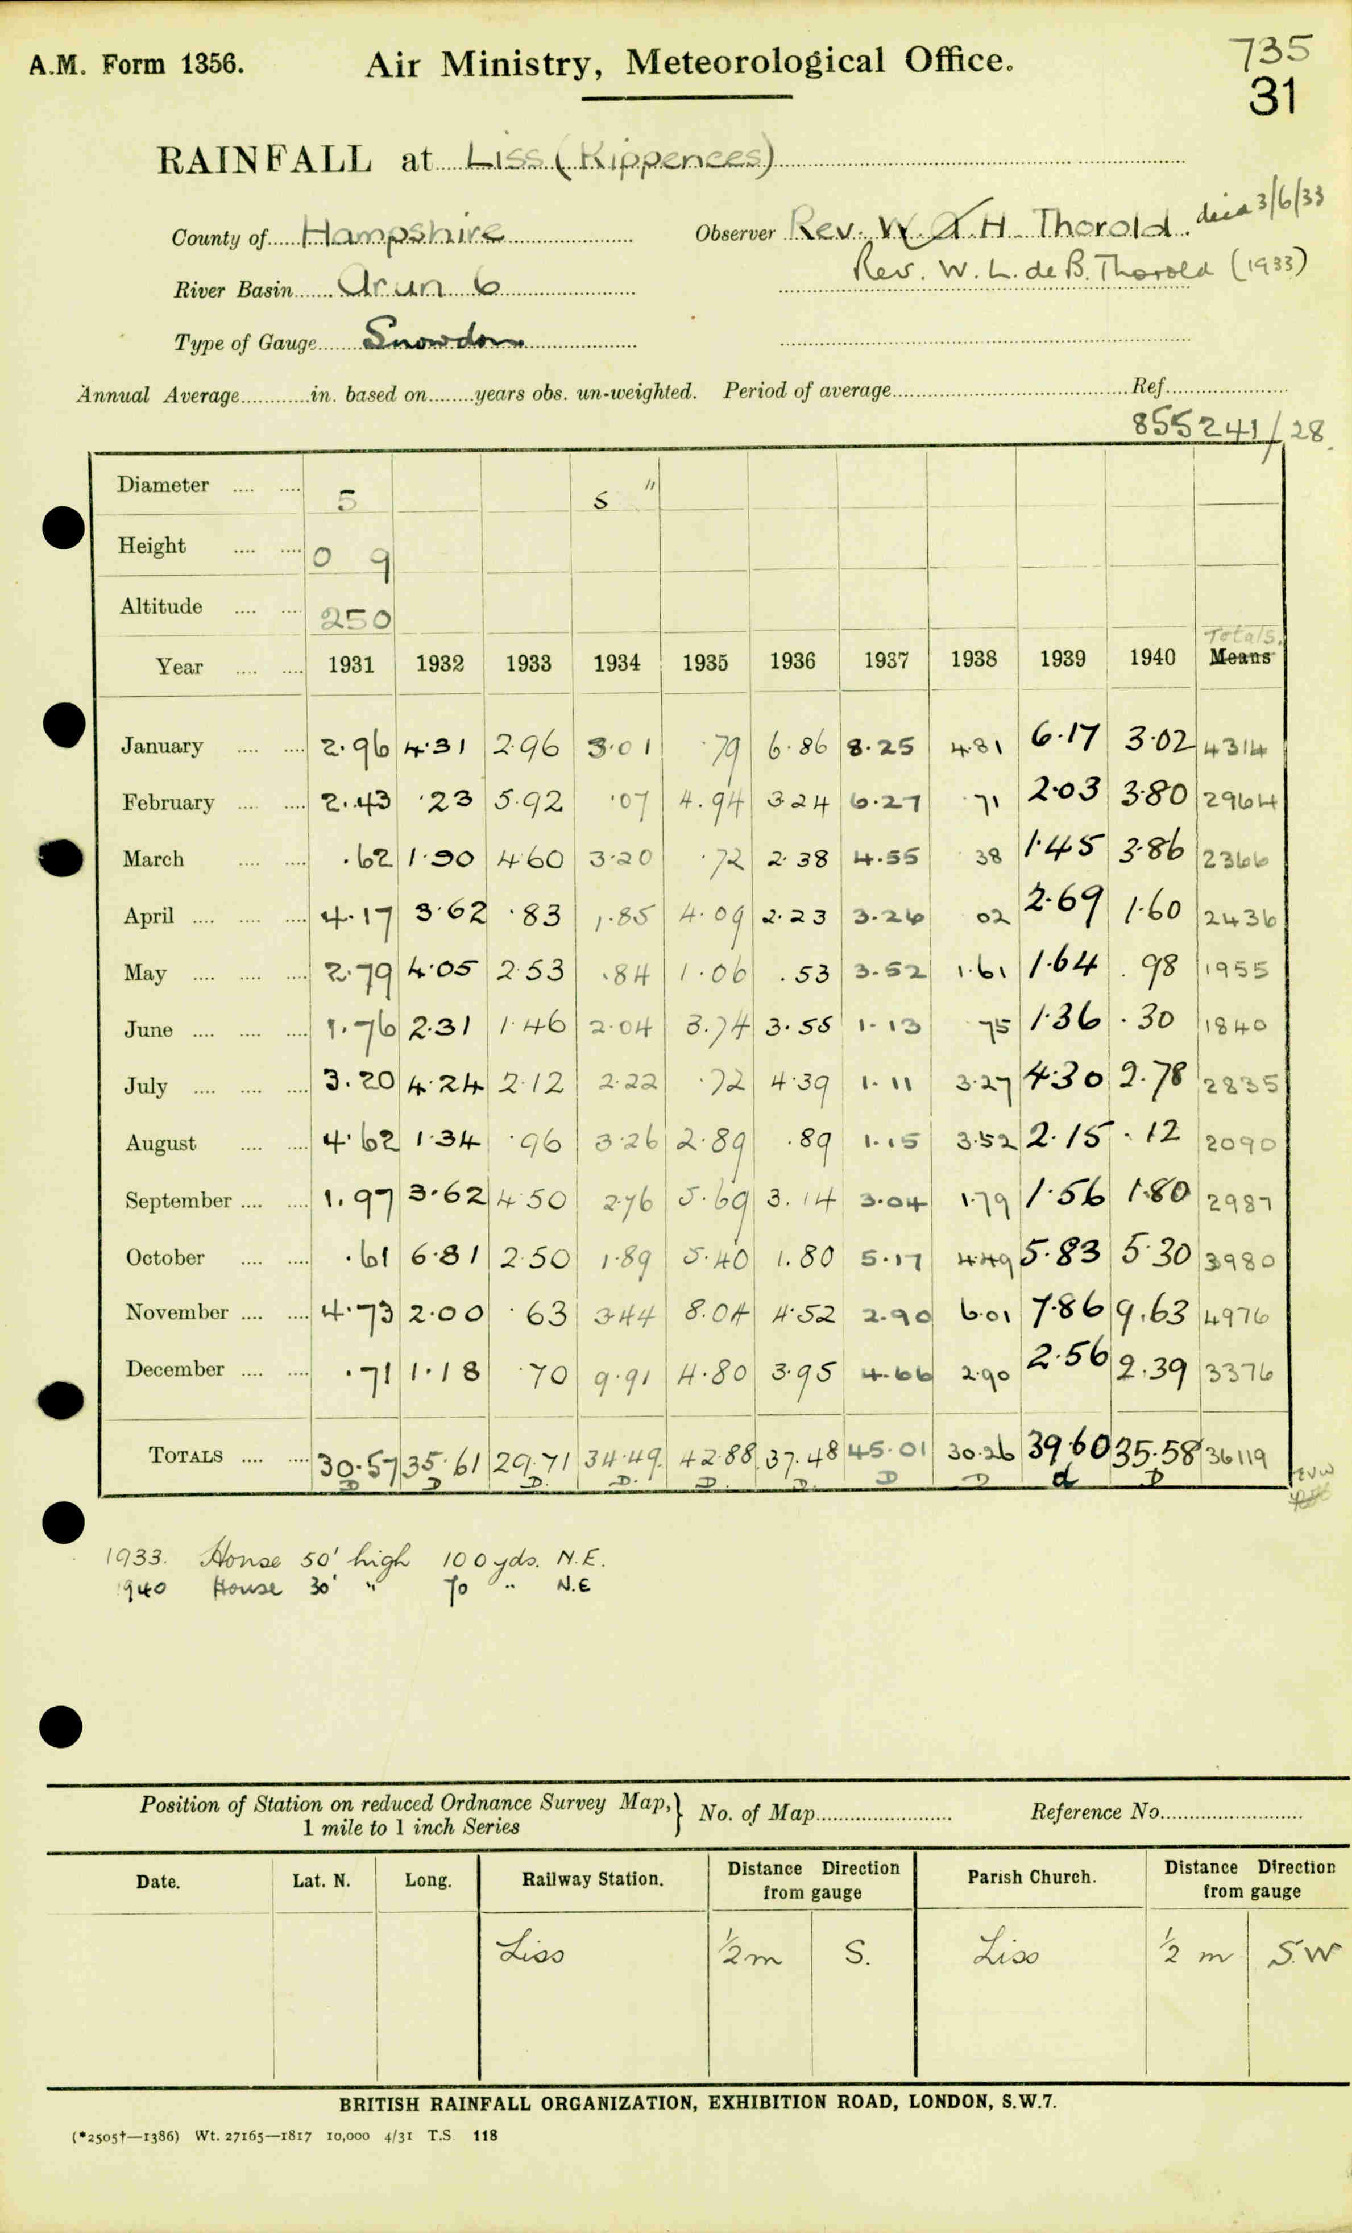 A.M. Form 1356. Air Ministry, Meteorological Office. 735
31
RAINFALL at Liss (Kippences)
County of Hampshire Observer Rev. W. A. H. Thorold. died 3/6/33
Rev. W. L. de B. Thorold (1933)
River Basin Arun 6
Type of Gauge Snowdon
Annual Average in. based on years obs. un-weighted. Period of average Ref.
855241/28.
Diameter 5 5"
Height 0 9
Altitude 250
Totals.
Year 1931 1932 1933 1934 1935 1936 1937 1938 1939 1940 Means
January 2.96 4.31 2.96 3.01 .79 6.86 8.25 4.81 6.17 3.02 4314
February 2.43 .23 5.92 .07 4.94 3.24 6.27 .71 2.03 3.80 2964
March .62 1.90 4.60 3.20 .72 2.38 4.55 38 1.45 3.86 2366
April 4.17 3.62 .83 1.85 4.09 2.23 3.26 02 2.69 1.60 2436
May 2.79 4.05 2.53 .84 1.06 .53 3.52 1.61 1.64 .98 1955
June 1.76 2.31 1.46 2.04 3.74 3.55 1.13 75 1.36 .30 1840
July 3.20 4.24 2.12 2.22 .72 4.39 1.11 3.27 4.30 2.78 2835
August 4.62 1.34 .96 3.26 2.89 .89 1.15 3.52 2.15 .12 2090
September 1.97 3.62 4.50 2.76 5.69 3.14 3.04 1.79 1.56 1.80 2987
October .61 6.81 2.50 1.89 5.40 1.80 5.17 4.49 5.83 5.30 3980
November 4.73 2.00 .63 3.44 8.04 4.52 2.90 6.01 7.86 9.63 4976
December .71 1.18 .70 9.91 4.80 3.95 4.66 2.90 2.56 2.39 3376
TOTALS 30.57 35.61 29.71 34.49 42.88 37.48 45.01 30.26 39.60 35.58 36119
D D D. D. D. D. D D d D
1933. House 50' high 100 yds. N.E.
1940 House 30' " 70 " N.E
Position of Station on reduced Ordnance Survey Map, } No. of Map Reference No.
1 mile to 1 inch Series
Date. Lat. N. Long. Railway Station. Distance Direction from gauge Parish Church. Distance Direction from gauge
Liss ½ m S. Liss ½ m S.W
BRITISH RAINFALL ORGANIZATION, EXHIBITION ROAD, LONDON, S.W.7.
(*2505†—1386) Wt. 27165—1817 10,000 4/31 T.S 118